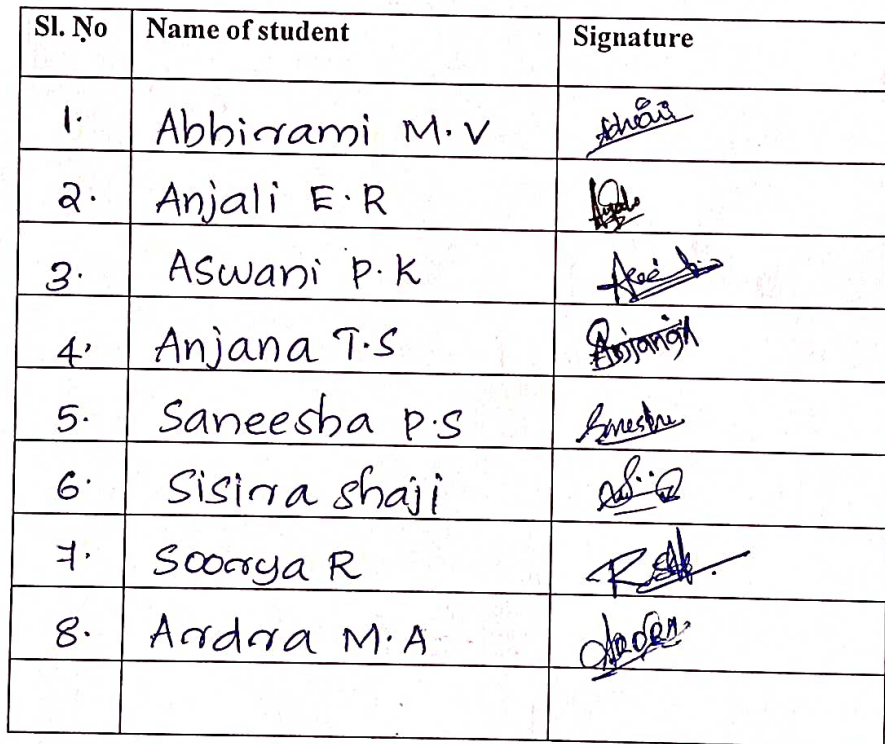 Sl. No Name of student Signature
1. Abhirami M.V
2. Anjali E.R
3. Aswani P.K
4. Anjana T.S Anjana
5. Saneesha P.S
6. Sisira shaji
7. Soorya R
8. Ardra M.A